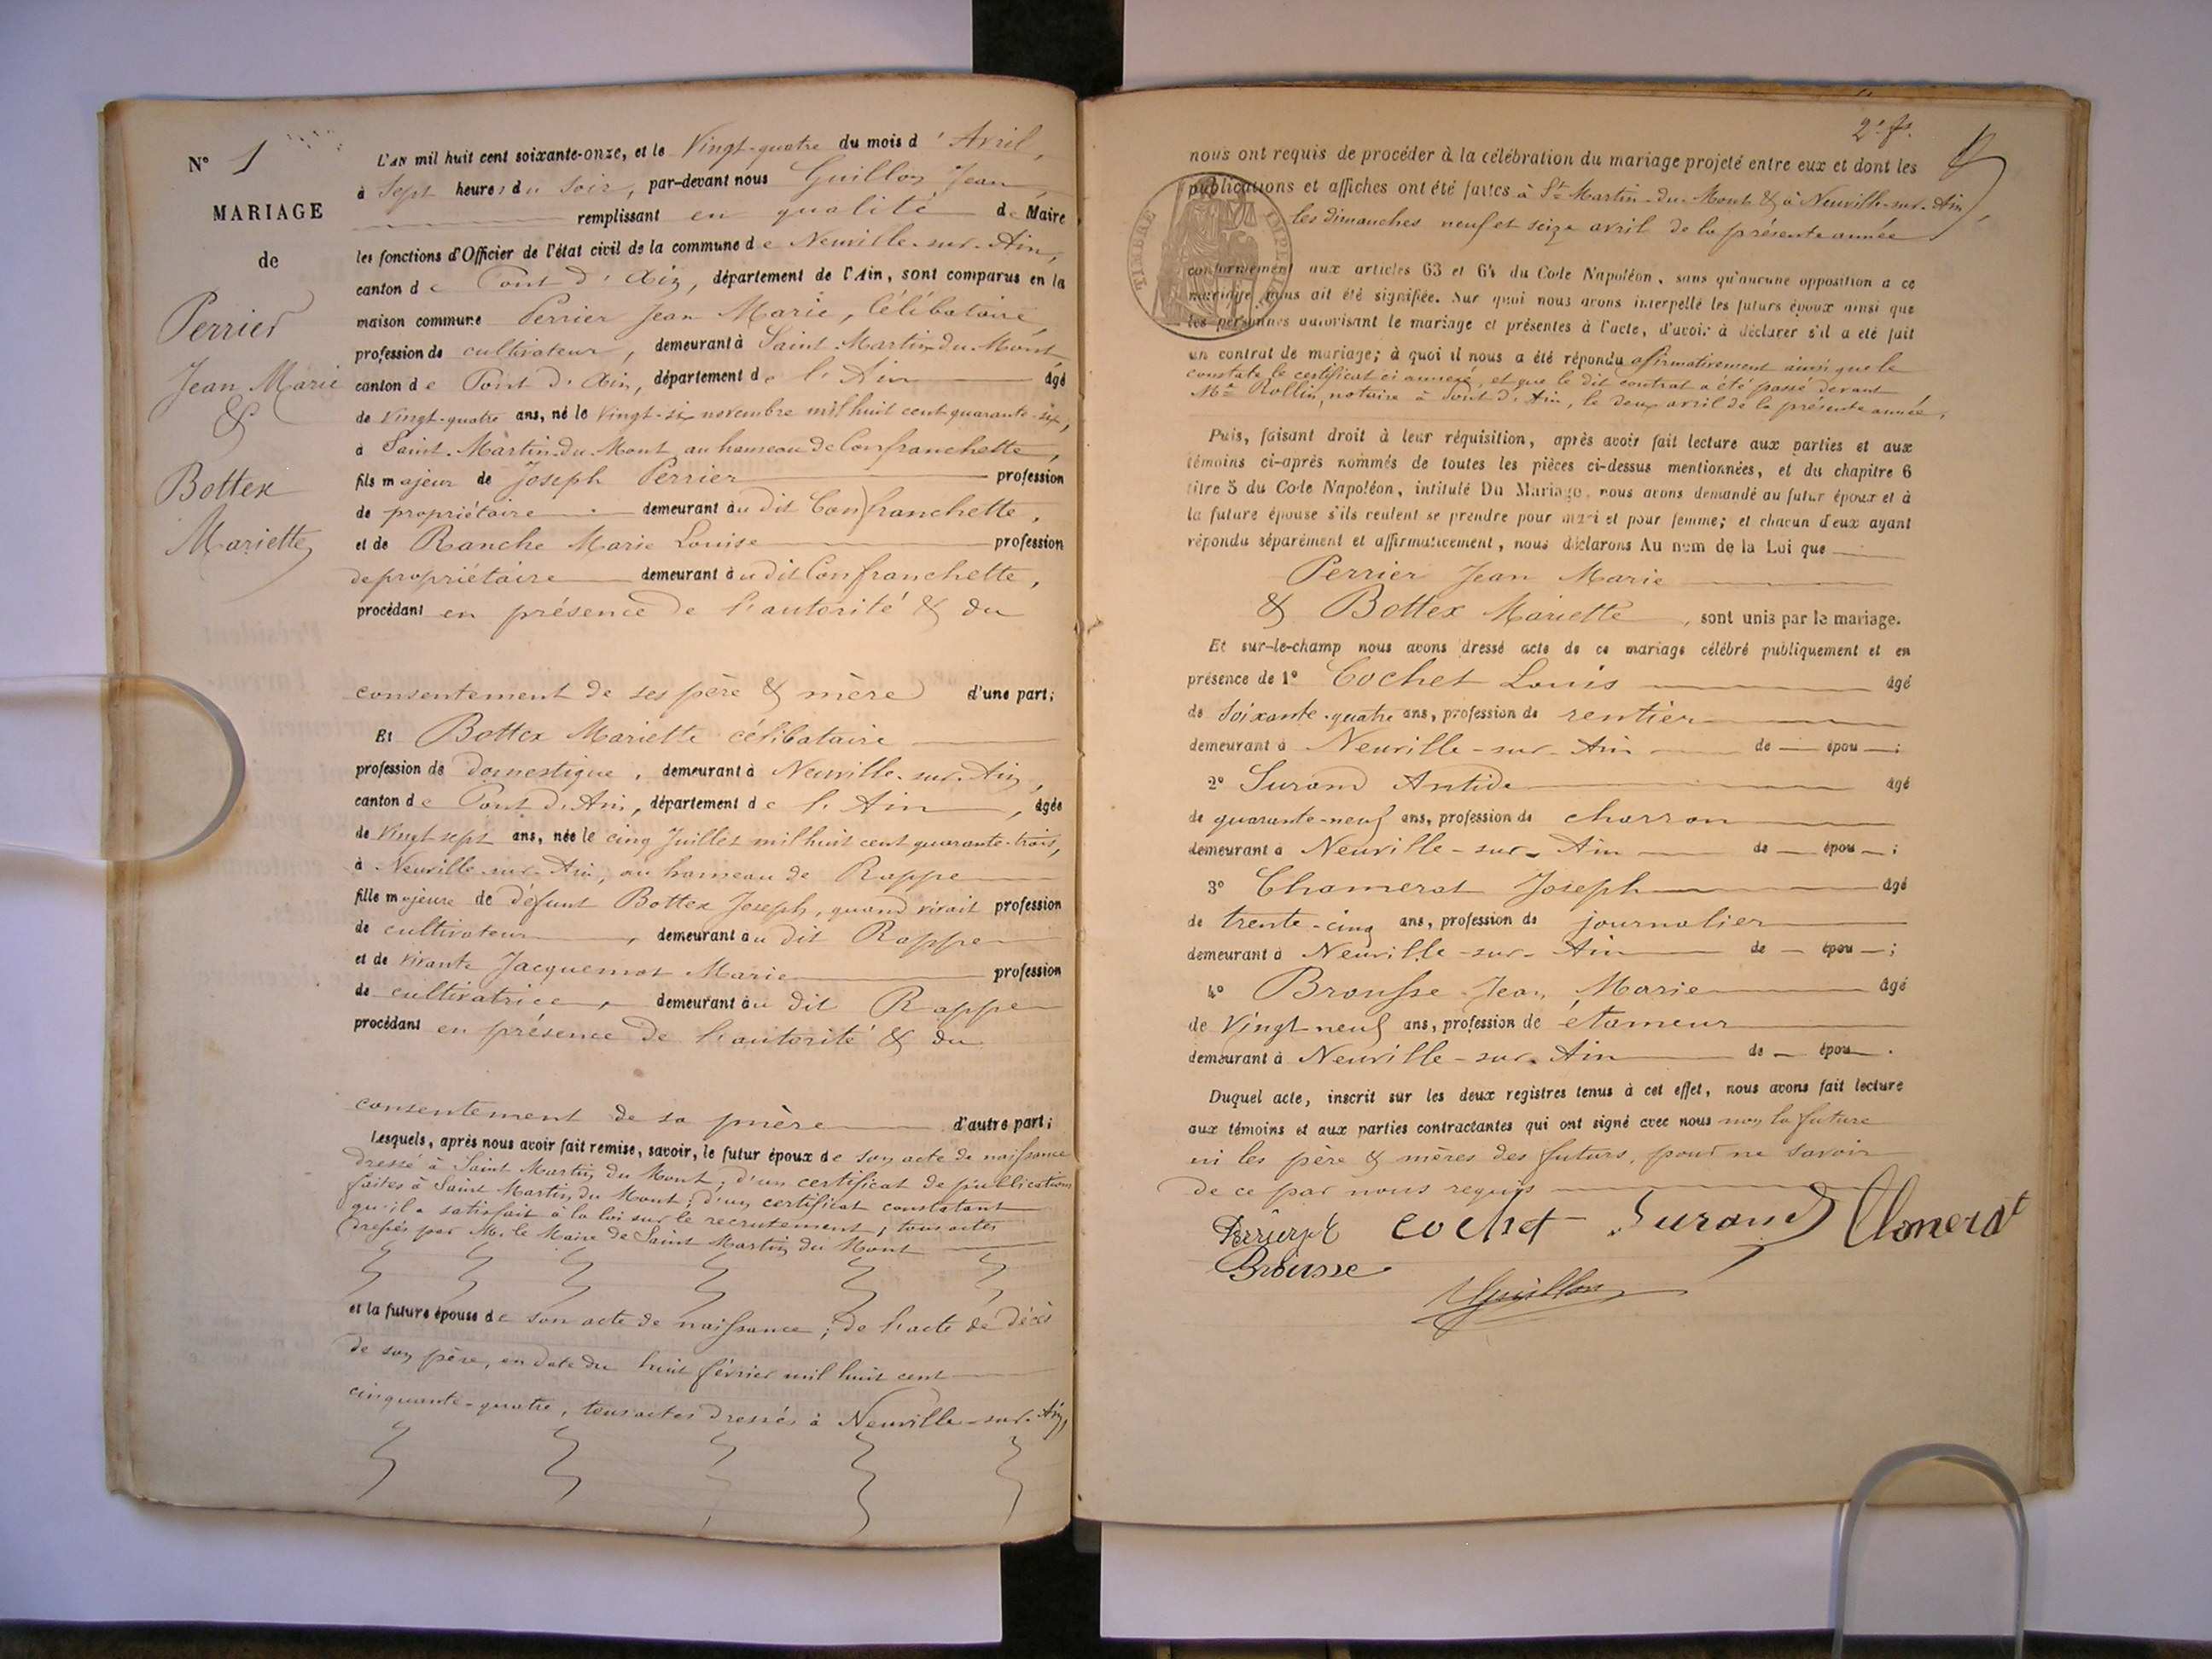 N° 1
MARIAGE
de
Perrier
Jean Marie
&
Bottex
Mariette
L'AN mil huit cent soixante-onze, et le Vingt-quatre du mois d'Avril,
à Sept heures du Soir, par-devant nous Guillon Jean,
remplissant en qualité de Maire
les fonctions d'Officier de l'état civil de la commune de Neuville-sur-Ain,
canton de Pont d'Ain, département de l'Ain, sont comparus en la
maison commune Perrier Jean Marie, Célibataire,
profession de cultivateur, demeurant à Saint-Martin-du-Mont,
canton de Pont d'Ain, département de l'Ain âgé
de Vingt-quatre ans, né le Vingt-six novembre mil huit cent quarante-six,
à Saint-Martin-du-Mont au hameau de Confranchette,
fils majeur de Joseph Perrier profession
de propriétaire demeurant au dit Confranchette,
et de Ranche Marie Louise profession
de propriétaire demeurant au dit Confranchette,
procédant en présence de l'autorité & du
consentement de ses père & mère d'une part;
Et Bottex Mariette célibataire
profession de domestique, demeurant à Neuville-sur-Ain,
canton de Pont d'Ain, département de l'Ain, âgée
de Vingt sept ans, née le cinq Juillet mil huit cent quarante-trois,
à Neuville-sur-Ain, au hameau de Rappe
fille majeure de défunt Bottex Joseph, quand vivait profession
de cultivateur, demeurant au dit Rappe
et de vivante Jacquemot Marie profession
de cultivatrice, demeurant au dit Rappe
procédant en présence de l'autorité & du
consentement de sa mère d'autre part;
Lesquels, après nous avoir fait remise, savoir, le futur époux de son acte de naissance
dressé à Saint Martin du Mont; d'un certificat de publications
faites à Saint Martin du Mont; d'un certificat constatant
qu'il a satisfait à la loi sur le recrutement; tous actes
dressés par Mr. le Maire de Saint Martin du Mont
et la future épouse de son acte de naissance; de l'acte de décès
de son père, en date du huit février mil huit cent
cinquante-quatre, tous actes dressés à Neuville-sur-Ain,
2e f.
nous ont requis de procéder à la célébration du mariage projeté entre eux et dont les
publications et affiches ont été faites à St Martin-du-Mont & à Neuville-sur-Ain,
les dimanches neuf et seize avril de la présente année
TIMBRE IMPÉRIAL
conformément aux articles 63 et 64 du Code Napoléon, sans qu'aucune opposition a ce
mariage nous ait été signifiée. Sur quoi nous avons interpellé les futurs époux ainsi que
les personnes autorisant le mariage et présentes à l'acte, d'avoir à déclarer s'il a été fait
un contrat de mariage; à quoi il nous a été répondu afirmativement ainsi que le
constate le certificat ci annexé, et que le dit contrat a été passé devant
Me Rollin, notaire à Pont d'Ain, le deux avril de la présente année,
Puis, faisant droit à leur réquisition, après avoir fait lecture aux parties et aux
témoins ci-après nommés de toutes les pièces ci-dessus mentionnées, et du chapitre 6
titre 5 du Code Napoléon, intitulé Du Mariage, nous avons demandé au futur époux et à
la future épouse s'ils veulent se prendre pour mari et pour femme; et chacun d'eux ayant
répondu séparément et affirmativement, nous déclarons Au nom de la Loi que
Perrier Jean Marie
& Bottex Mariette, sont unis par le mariage.
Et sur-le-champ nous avons dressé acte de ce mariage célébré publiquement et en
présence de 1° Cochet Louis âgé
de Soixante-quatre ans, profession de rentier
demeurant à Neuville-sur-Ain de — épou —;
2° Surand Antide âgé
de quarante-neuf ans, profession de charron
demeurant à Neuville-sur-Ain de — épou —;
3° Chamerat Joseph âgé
de trente-cinq ans, profession de journalier
demeurant à Neuville-sur-Ain de — épou —;
4° Brousse Jean Marie âgé
de Vingt neuf ans, profession de etameur
demeurant à Neuville-sur-Ain de — épou —.
Duquel acte, inscrit sur les deux registres tenus à cet effet, nous avons fait lecture
aux témoins et aux parties contractantes qui ont signé avec nous non la future
ni les père & mères des futurs, pour ne savoir
de ce par nous requis
Cochet Surand Chamerat
Brousse
Guillon